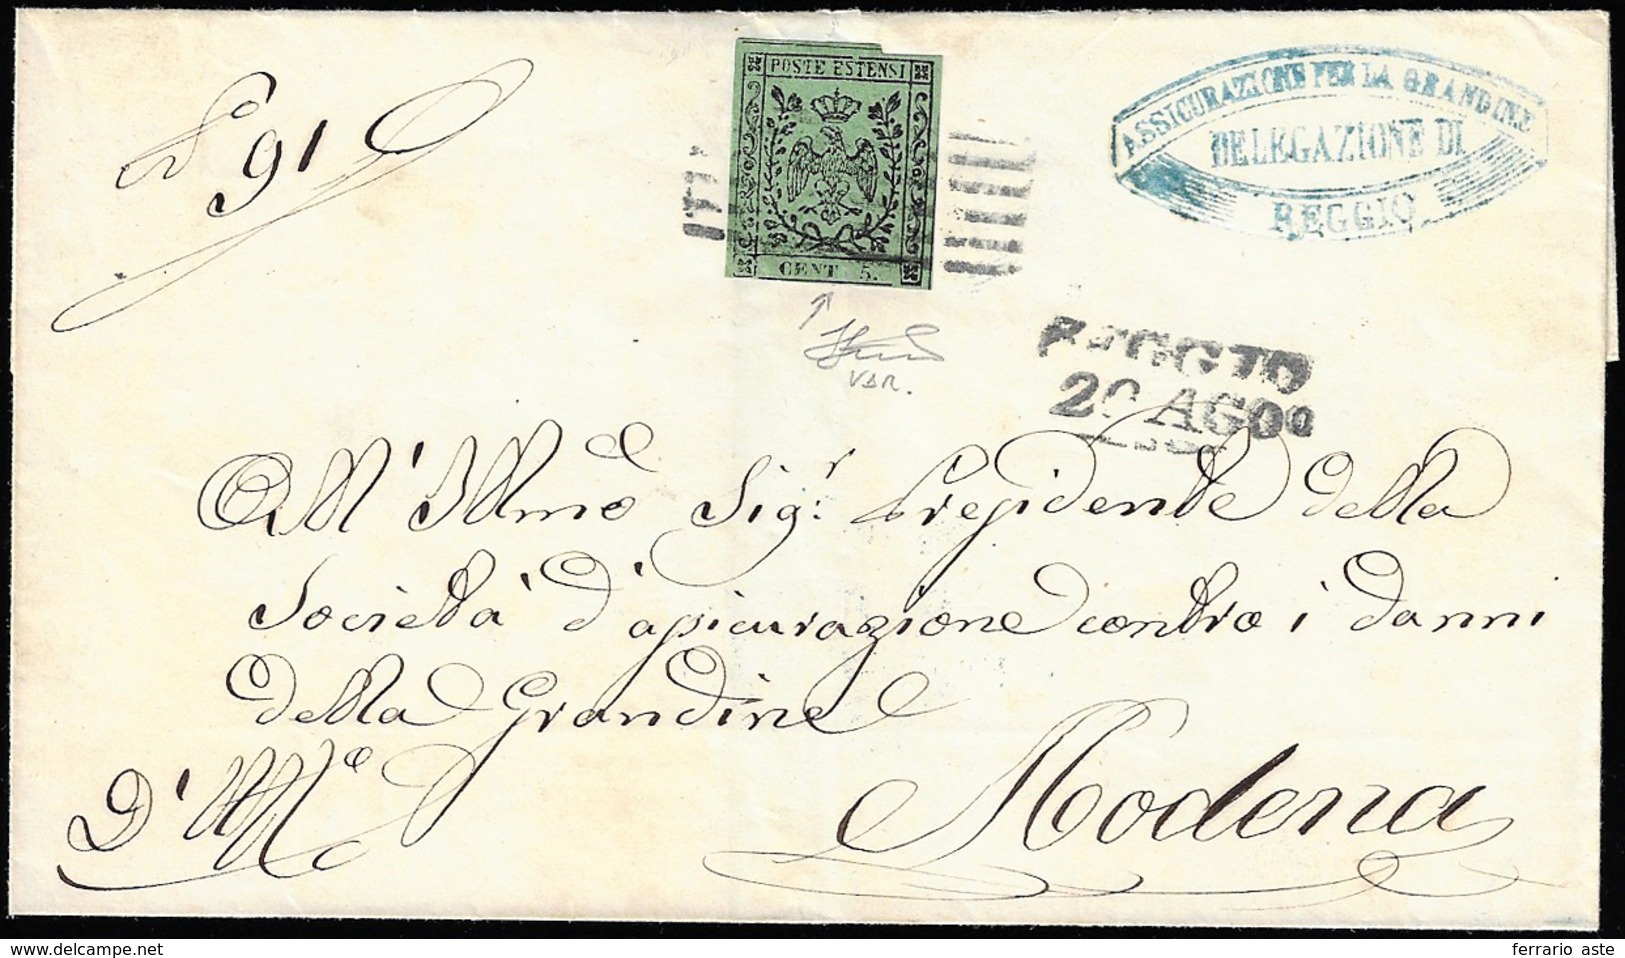 N° 91
POSTE ESTENSI
CENT 5.
ASSICURAZIONE PER LA GRANDINE
DELEGAZIONE DI
REGGIO
VAR.
REGGIO
20 AGO
All' Illmo Sig.r Presidente della
Società d'assicurazione contro i danni
della Grandine
Modena
delcampe.net
ferrario aste